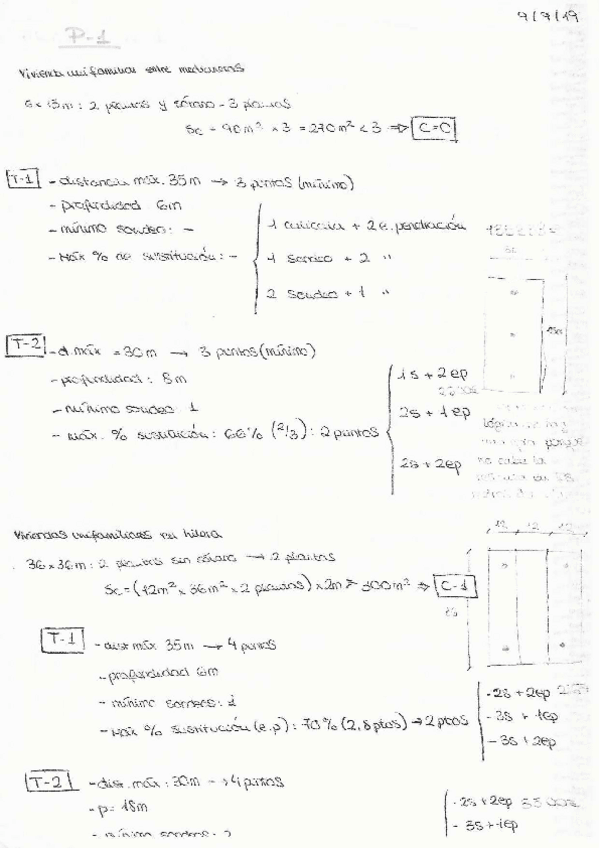 9/7/19
P-1
Vivienda unifamiliar entre medianeras
6 x 15m : 2 plantas y sótano - 3 plantas
Sc = 90m² x 3 = 270m² < 3 => C-0
T-1 - distancia máx. 35m → 3 puntos (mínimo)
- profundidad 6m
- mínimo sondeo : -
- Máx % de sustitución : -
1 calicata + 2 e. penetración
1 sondeo + 2 "
2 sondeo + 1 "
T-2 - d. máx = 30m → 3 puntos (mínimo)
- profundidad : 8m
- mínimo sondeo 1
- máx. % sustitución : 66% (2/3) : 2 puntos
1s + 2ep
2s + 1ep
2s + 2ep
Viviendas unifamiliares en hilera
36 x 36m : 2 plantas sin sótano → 2 plantas
Sc = (12m² x 36m² x 2 plantas) x 2m > 300m² => C-1
12 12 12
T-1 - dist máx 35m → 4 puntos
- profundidad 6m
- mínimo sondeos : 1
- Máx % sustitución (e.p) : 70% (2,8 ptos) → 2 ptos
- 2s + 2ep
- 3s + 1ep
- 3s + 2ep
T-2 - dist. máx : 30m → 4 puntos
- p = 18m
- mínimo sondeos : 2
- 2s + 2ep
- 3s + 1ep